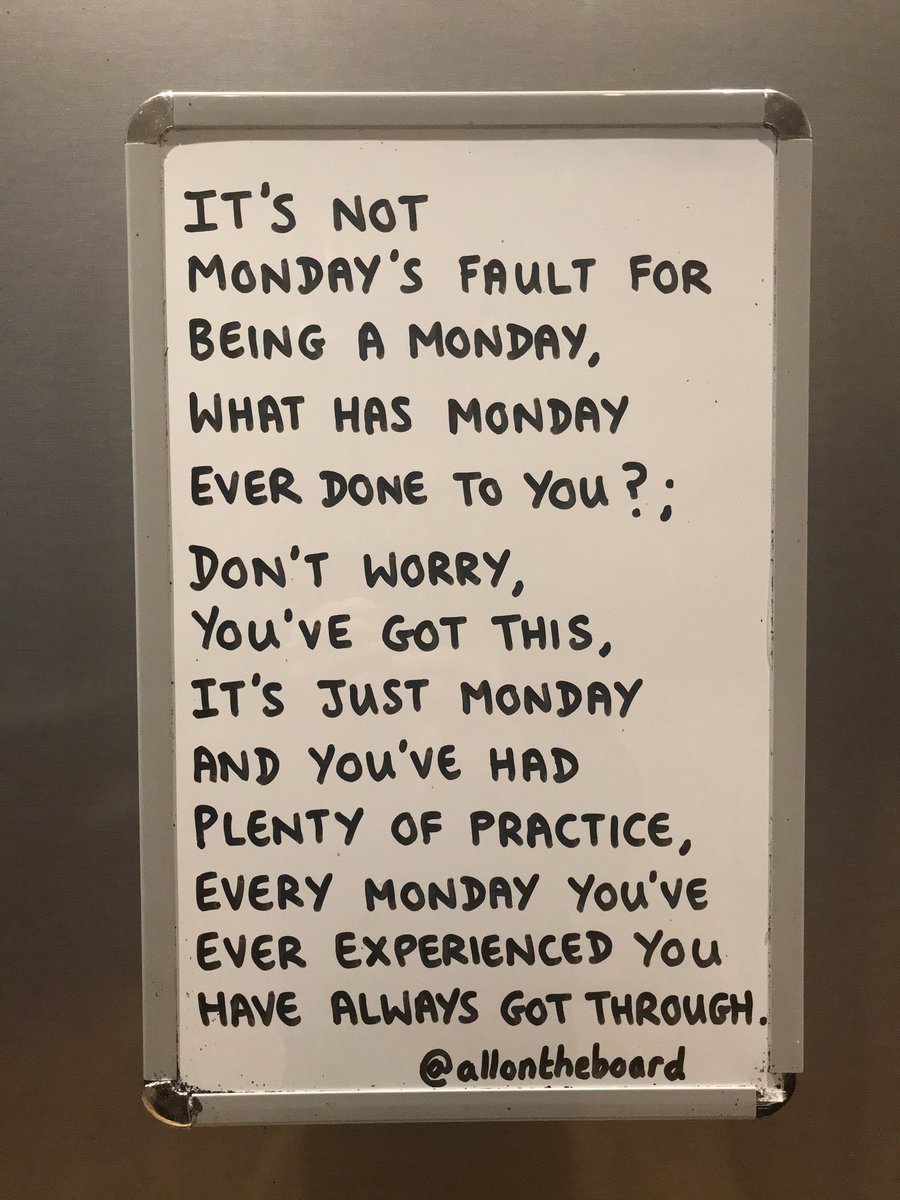 IT'S NOT
MONDAY'S FAULT FOR
BEING A MONDAY,
WHAT HAS MONDAY
EVER DONE TO YOU?;
DON'T WORRY,
YOU'VE GOT THIS,
IT'S JUST MONDAY
AND YOU'VE HAD
PLENTY OF PRACTICE,
EVERY MONDAY YOU'VE
EVER EXPERIENCED YOU
HAVE ALWAYS GOT THROUGH.
@allontheboard